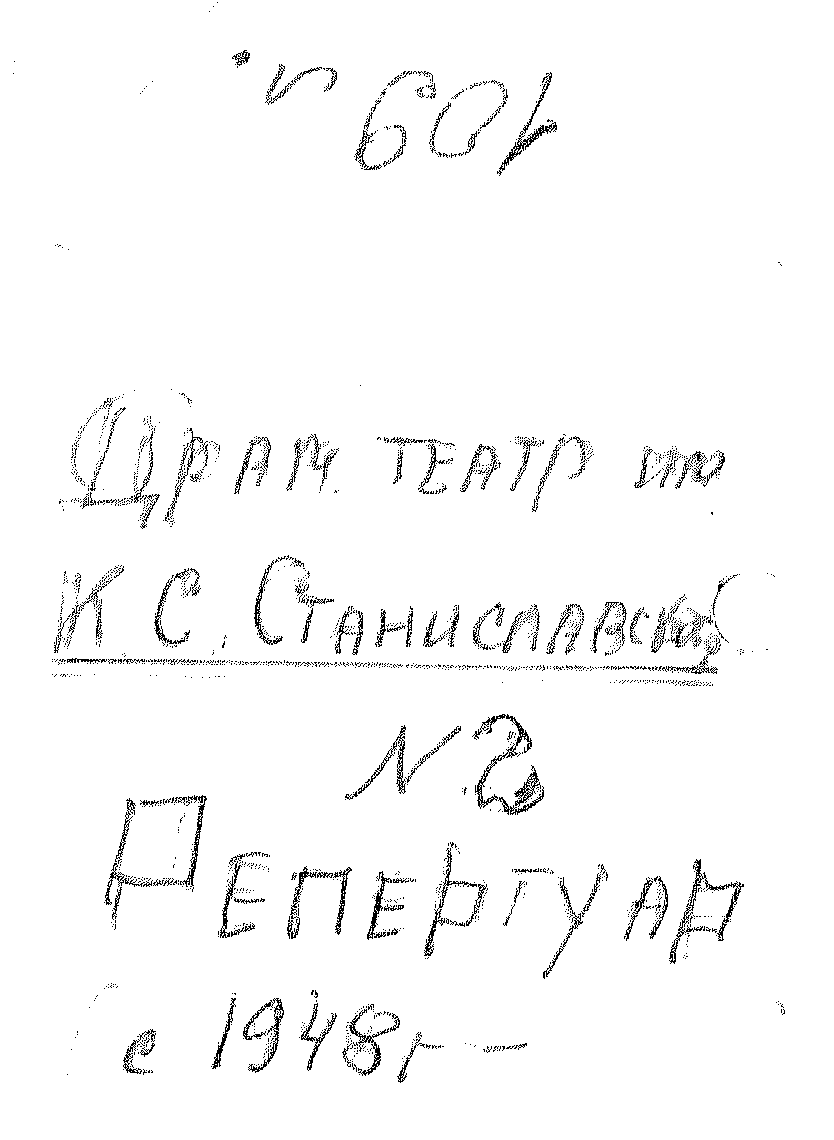 109
Драм. театр им.
К. С. Станиславского
N 2
Репертуар
с 1948г —